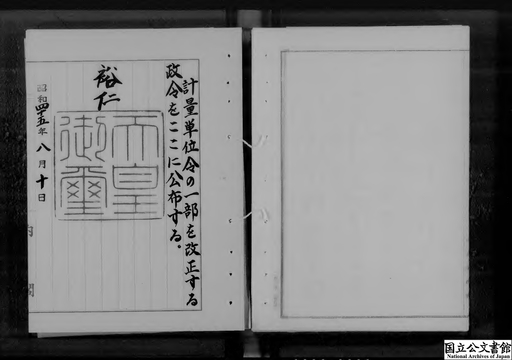 計量単位令の一部を改正する
政令をここに公布する。
裕仁
天皇
御璽
昭和四十五年八月十日
内閣
国立公文書館
National Archives of Japan